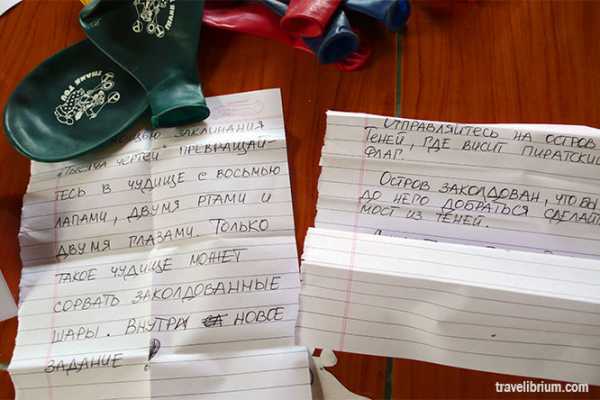 THANK YOU
THANK YOU
ЗАКЛИНАНИЯ
"ТЫСЯЧА ЧЕРТЕЙ" ПРЕВРАЩАЙ-
ТЕСЬ В ЧУДИЩЕ С ВОСЬМЬЮ
ЛАПАМИ, ДВУМЯ РТАМИ И
ДВУМЯ ГЛАЗАМИ. ТОЛЬКО
ТАКОЕ ЧУДИЩЕ МОЖЕТ
СОРВАТЬ ЗАКОЛДОВАННЫЕ
ШАРЫ. ВНУТРИ НОВОЕ
ЗАДАНИЕ
ОТПРАВЛЯЙТЕСЬ НА ОСТРОВ
ТЕНЕЙ, ГДЕ ВИСИТ ПИРАТСКИ
ФЛАГ.
ОСТРОВ ЗАКОЛДОВАН, ЧТО БЫ
ДО НЕГО ДОБРАТЬСЯ СДЕЛАЙ
МОСТ ИЗ ТЕНЕЙ.
travelibrium.com